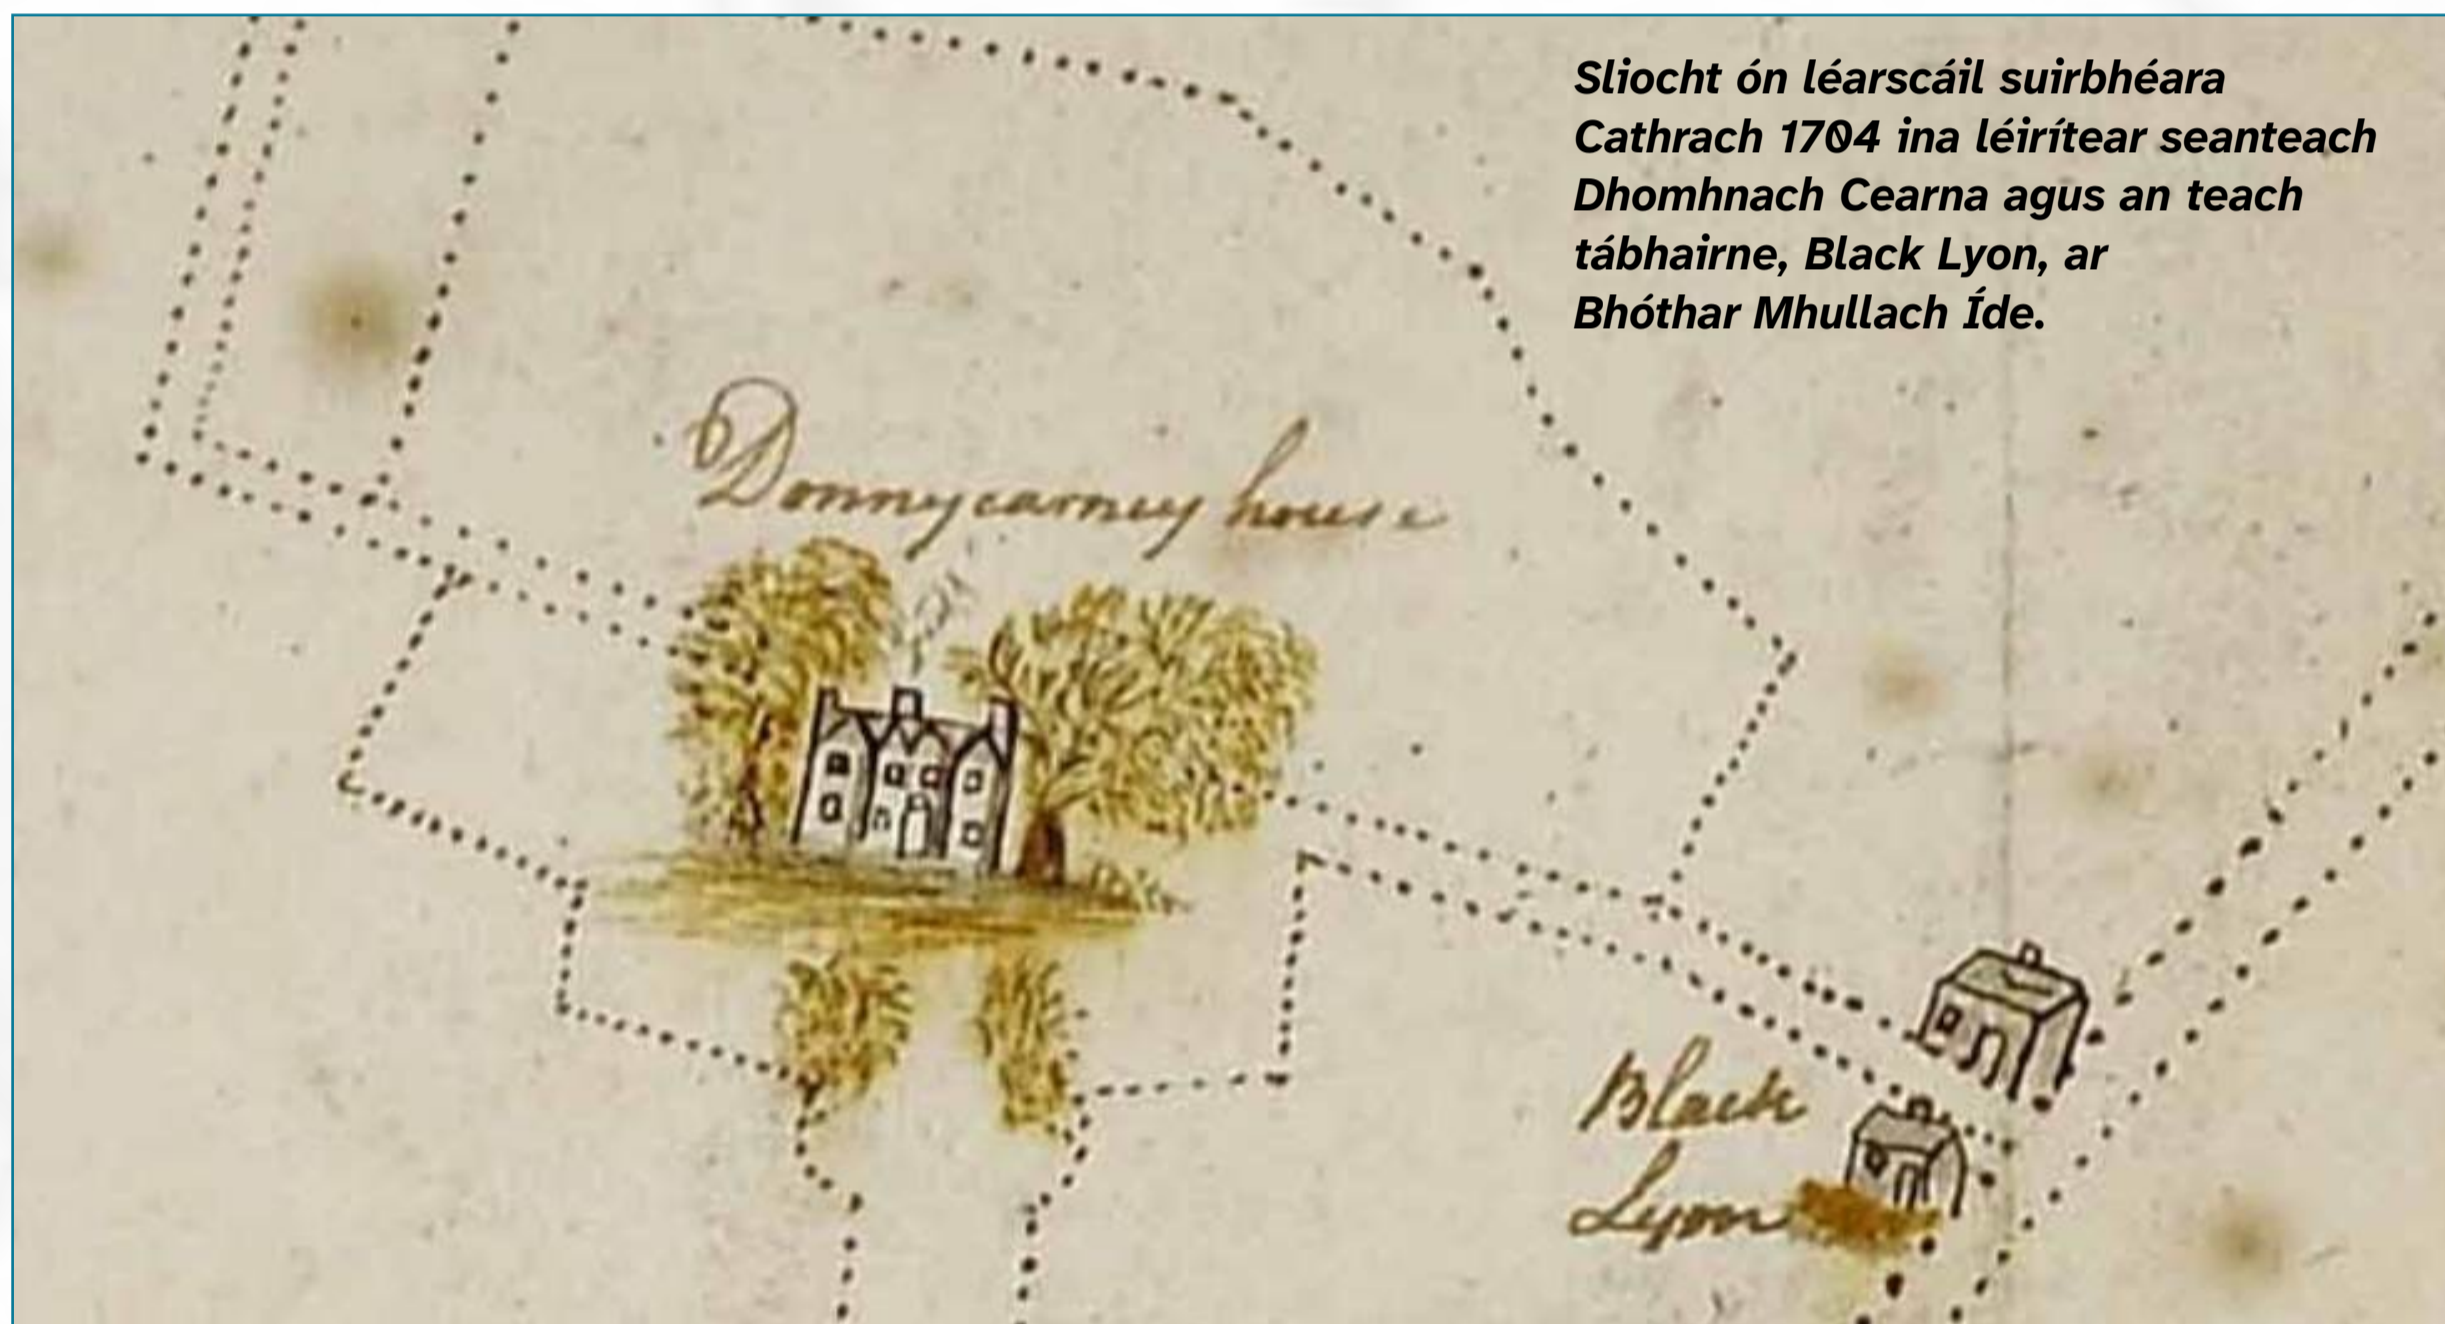 Sliocht ón léarscáil suirbhéara
Cathrach 1704 ina léirítear seanteach
Dhomhnach Cearna agus an teach
tábhairne, Black Lyon, ar
Bhóthar Mhullach Íde.
Donnycarney house
Black
Lyon